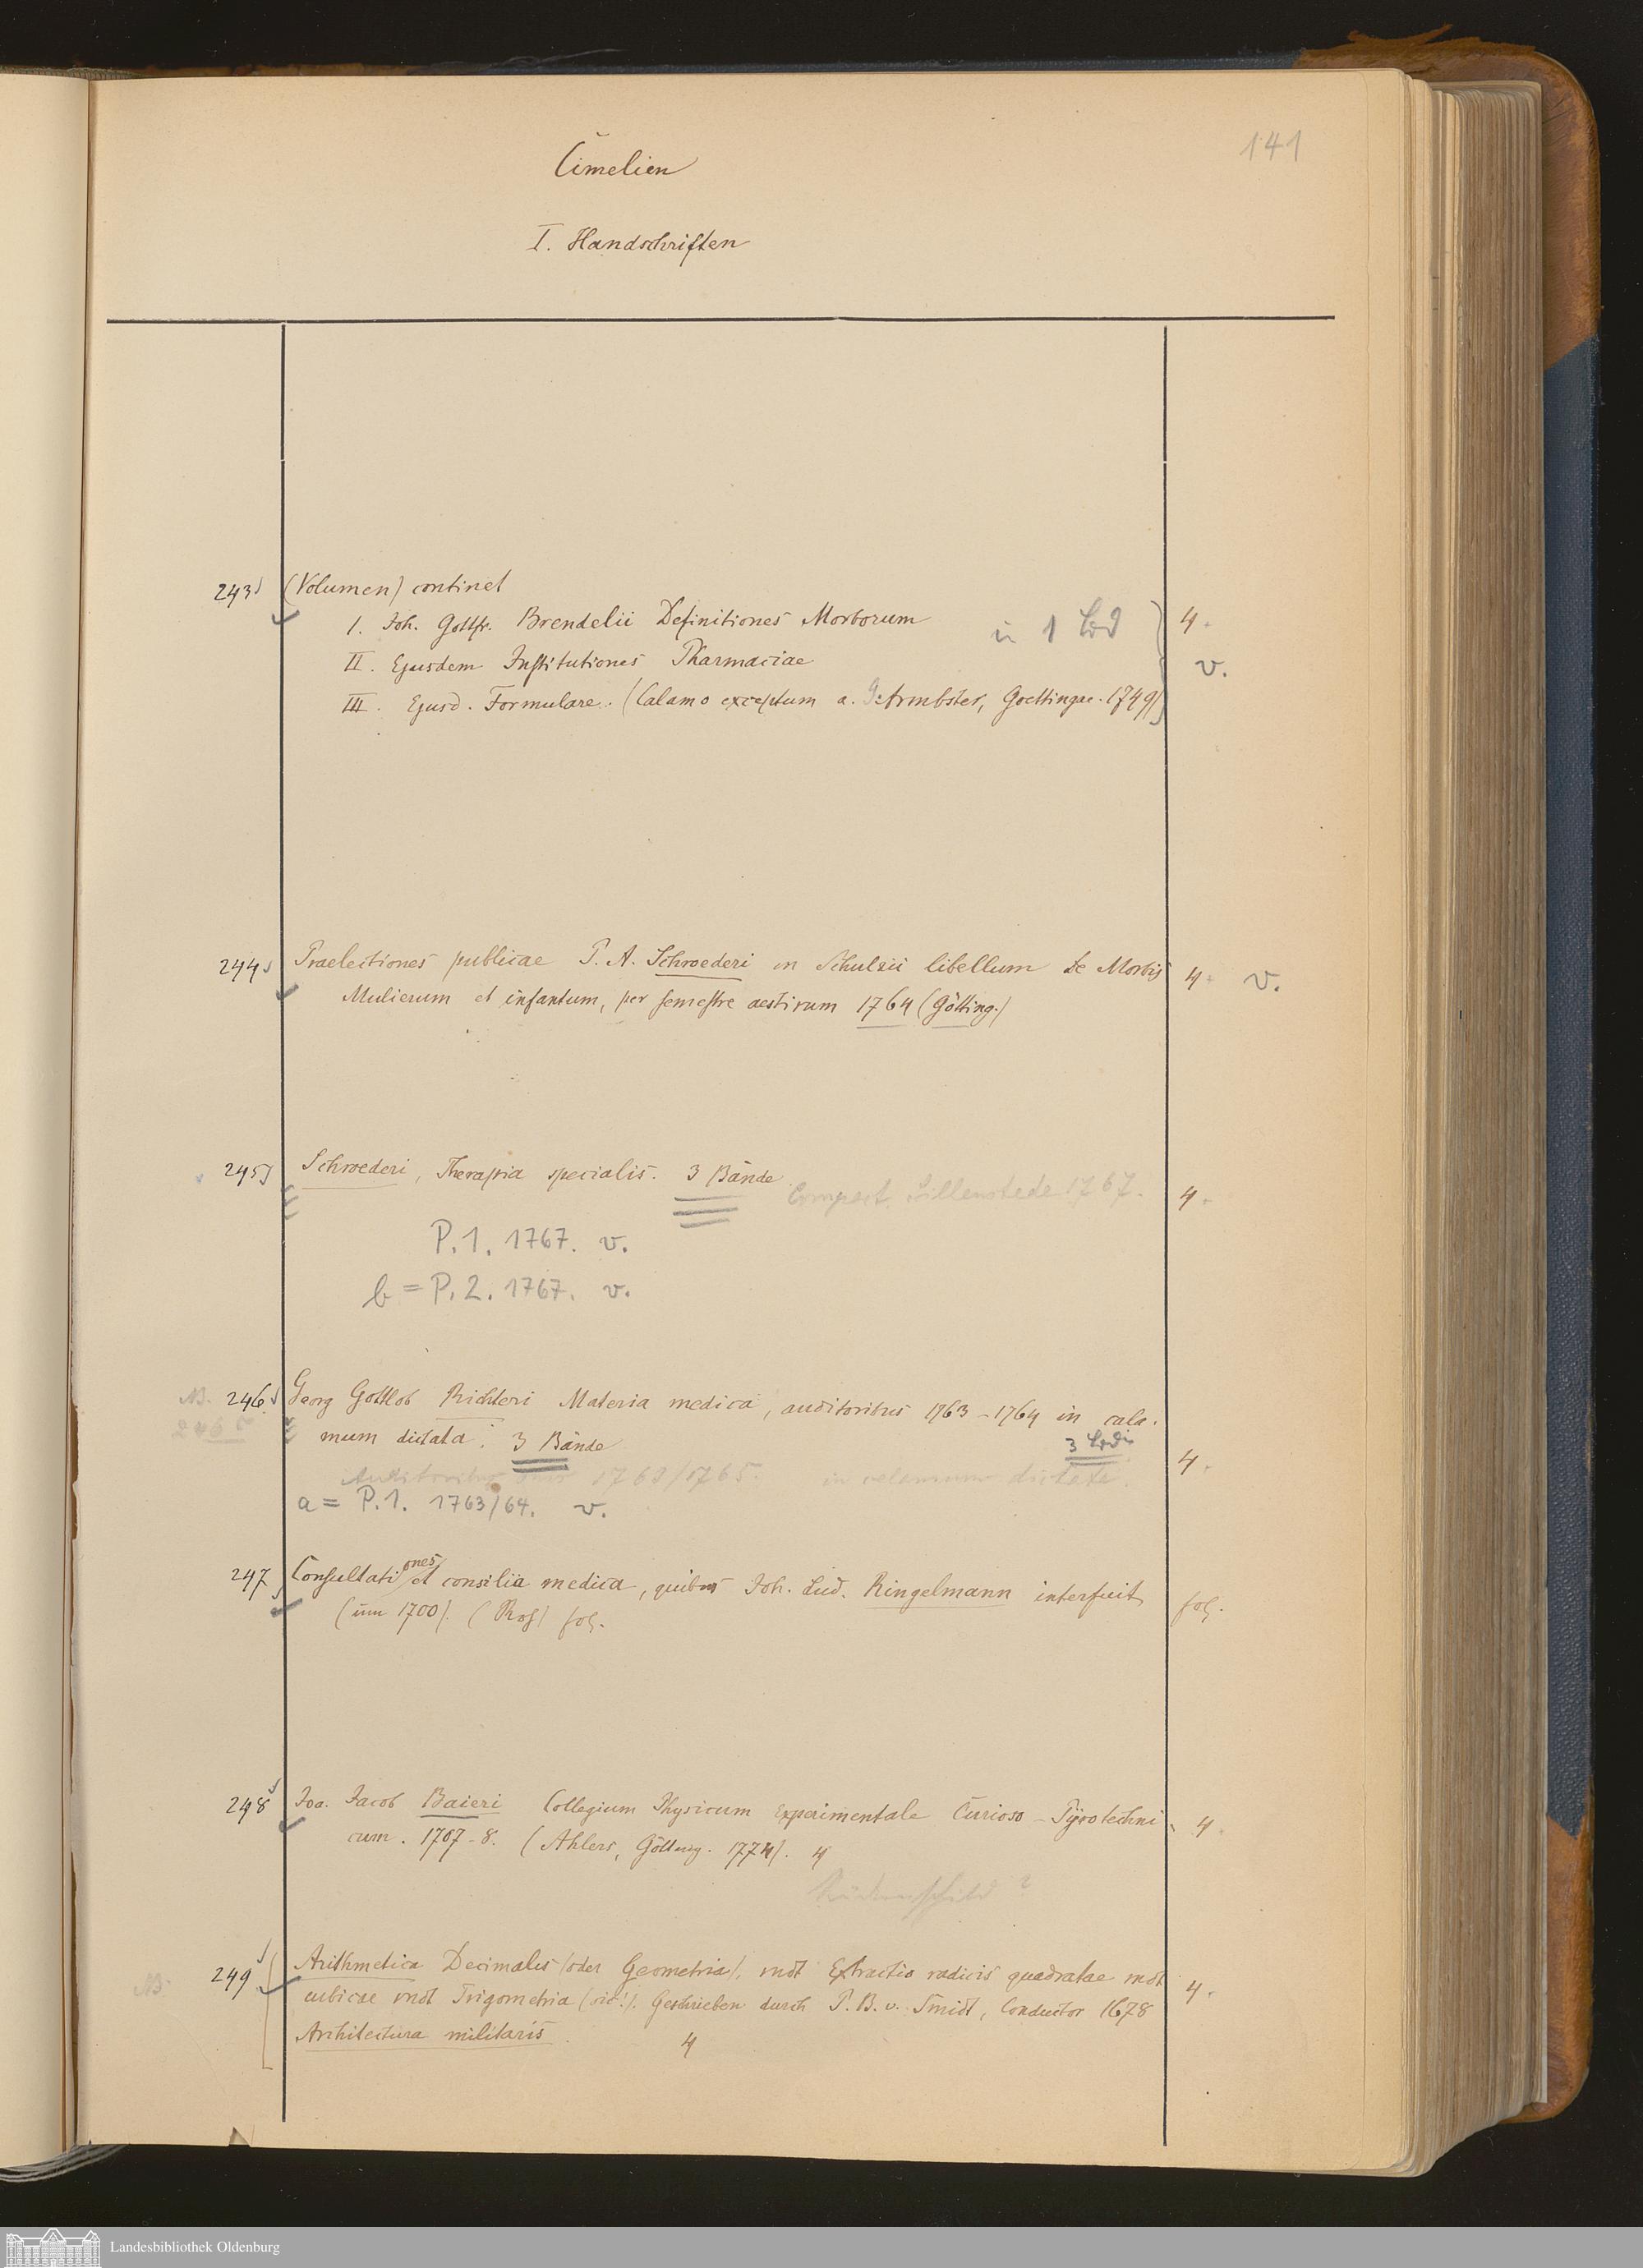 141
Cimelien
I. Handschriften
243 (Volumen) continet
I. Joh. Gottfr. Brendelii Definitiones Morborum in 1 Bd 4.
II. Ejusdem Institutiones Pharmaciae v.
III. Ejusd. Formulare. (Calamo exceptum a. Armbster, Goettingae. 1749)
244 Praelectiones publicae P. A. Schroederi in Schulzii libellum de Morbis 4. v.
Mulierum et infantum, per semestre aestivum 1764 (Götting.)
245 Schroederi, Therapia specialis. 3 Bände
Compect. Lillenstede 1767. 4.
P. 1. 1767. v.
b = P. 2. 1767. v.
NB. 246 Georg Gottlob Richteri Materia medica, auditoribus 1763-1764 in cala-
mum dictata. 3 Bände 3 Bde 4.
Auditoribus 1763/1765. in calamum dictata.
a = P. 1. 1763/64. v.
247 Consultationes et consilia medica, quibus Joh. Lud. Ringelmann interfuit
(um 1700). fol. fol.
248 Joa. Jacob Baieri Collegium Physicum Experimentale Curioso-Pyrotechni- 4.
cum. 1707-8. (Ahlers, Götting. 1774). 4
Rückenschild?
NB. 249 Arithmetica Decimalis (oder Geometria), undt Extractio radicis quadratae undt 4.
cubicae undt Trigometria (sic!). Geschrieben durch P. B. v. Smidt, Conductor 1678
Architectura militaris. 4
Landesbibliothek Oldenburg